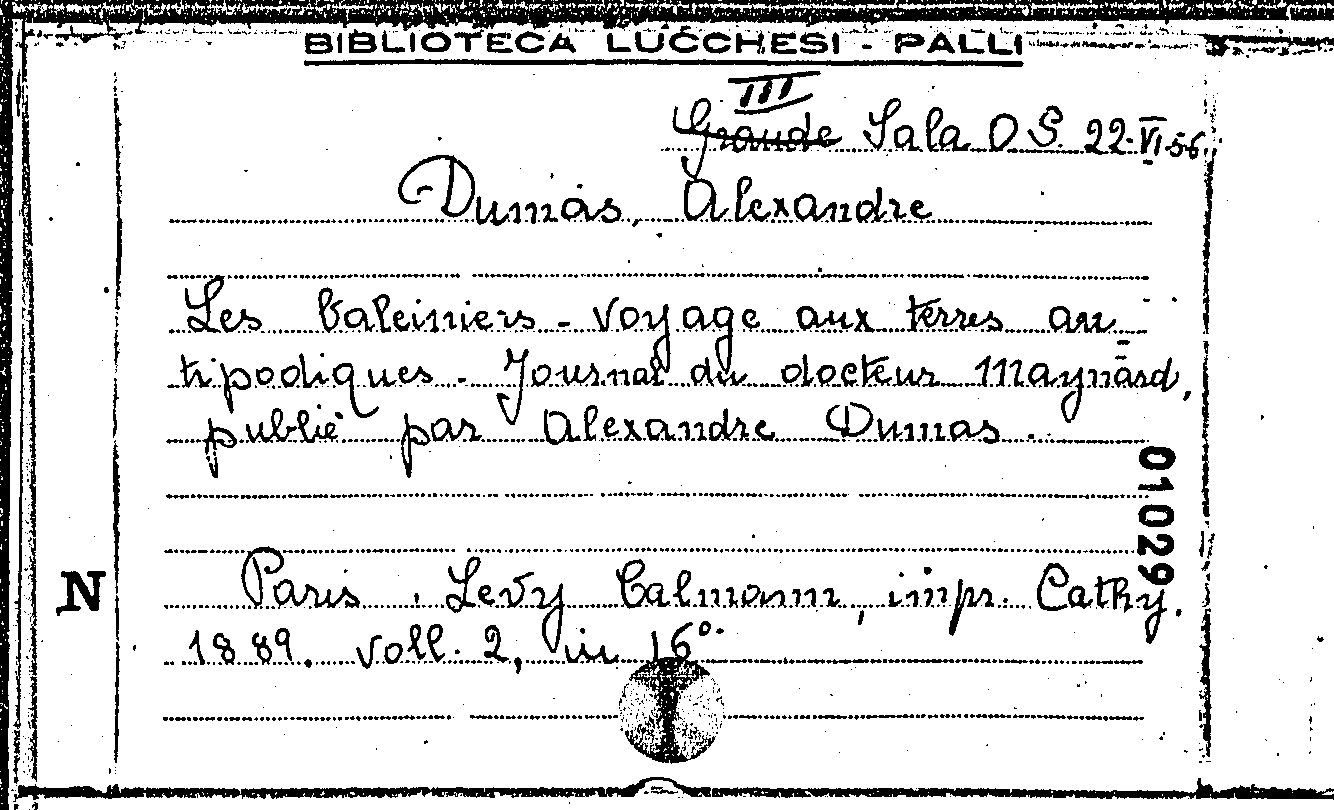 BIBLIOTECA LUCCHESI - PALLI
III
Grande Sala O S. 22.VI.56.
Dumas, Alexandre
Les baleiniers - Voyage aux terres an
tipodiques - Journal du docteur Maynard,
publié par Alexandre Dumas.
01029
N
Paris, Levy Calmann, impr. Cathy.
1889. voll. 2, in 16°.